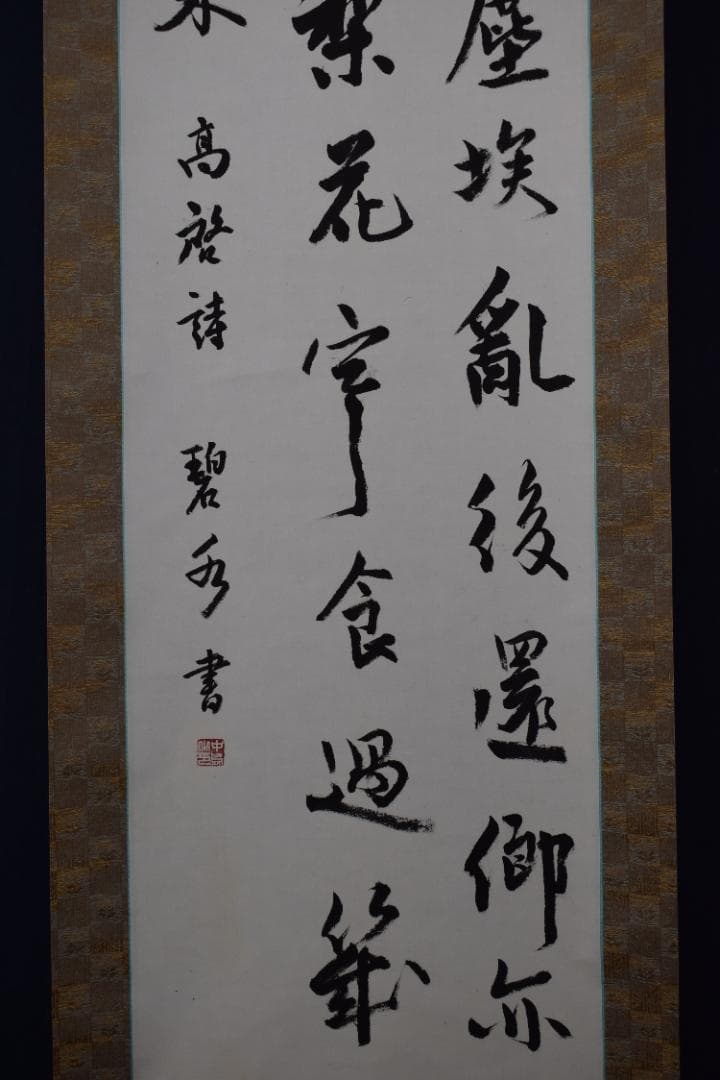 塵埃亂後還鄉亦
梨花寒食過幾
來 高啓詩 碧秀書